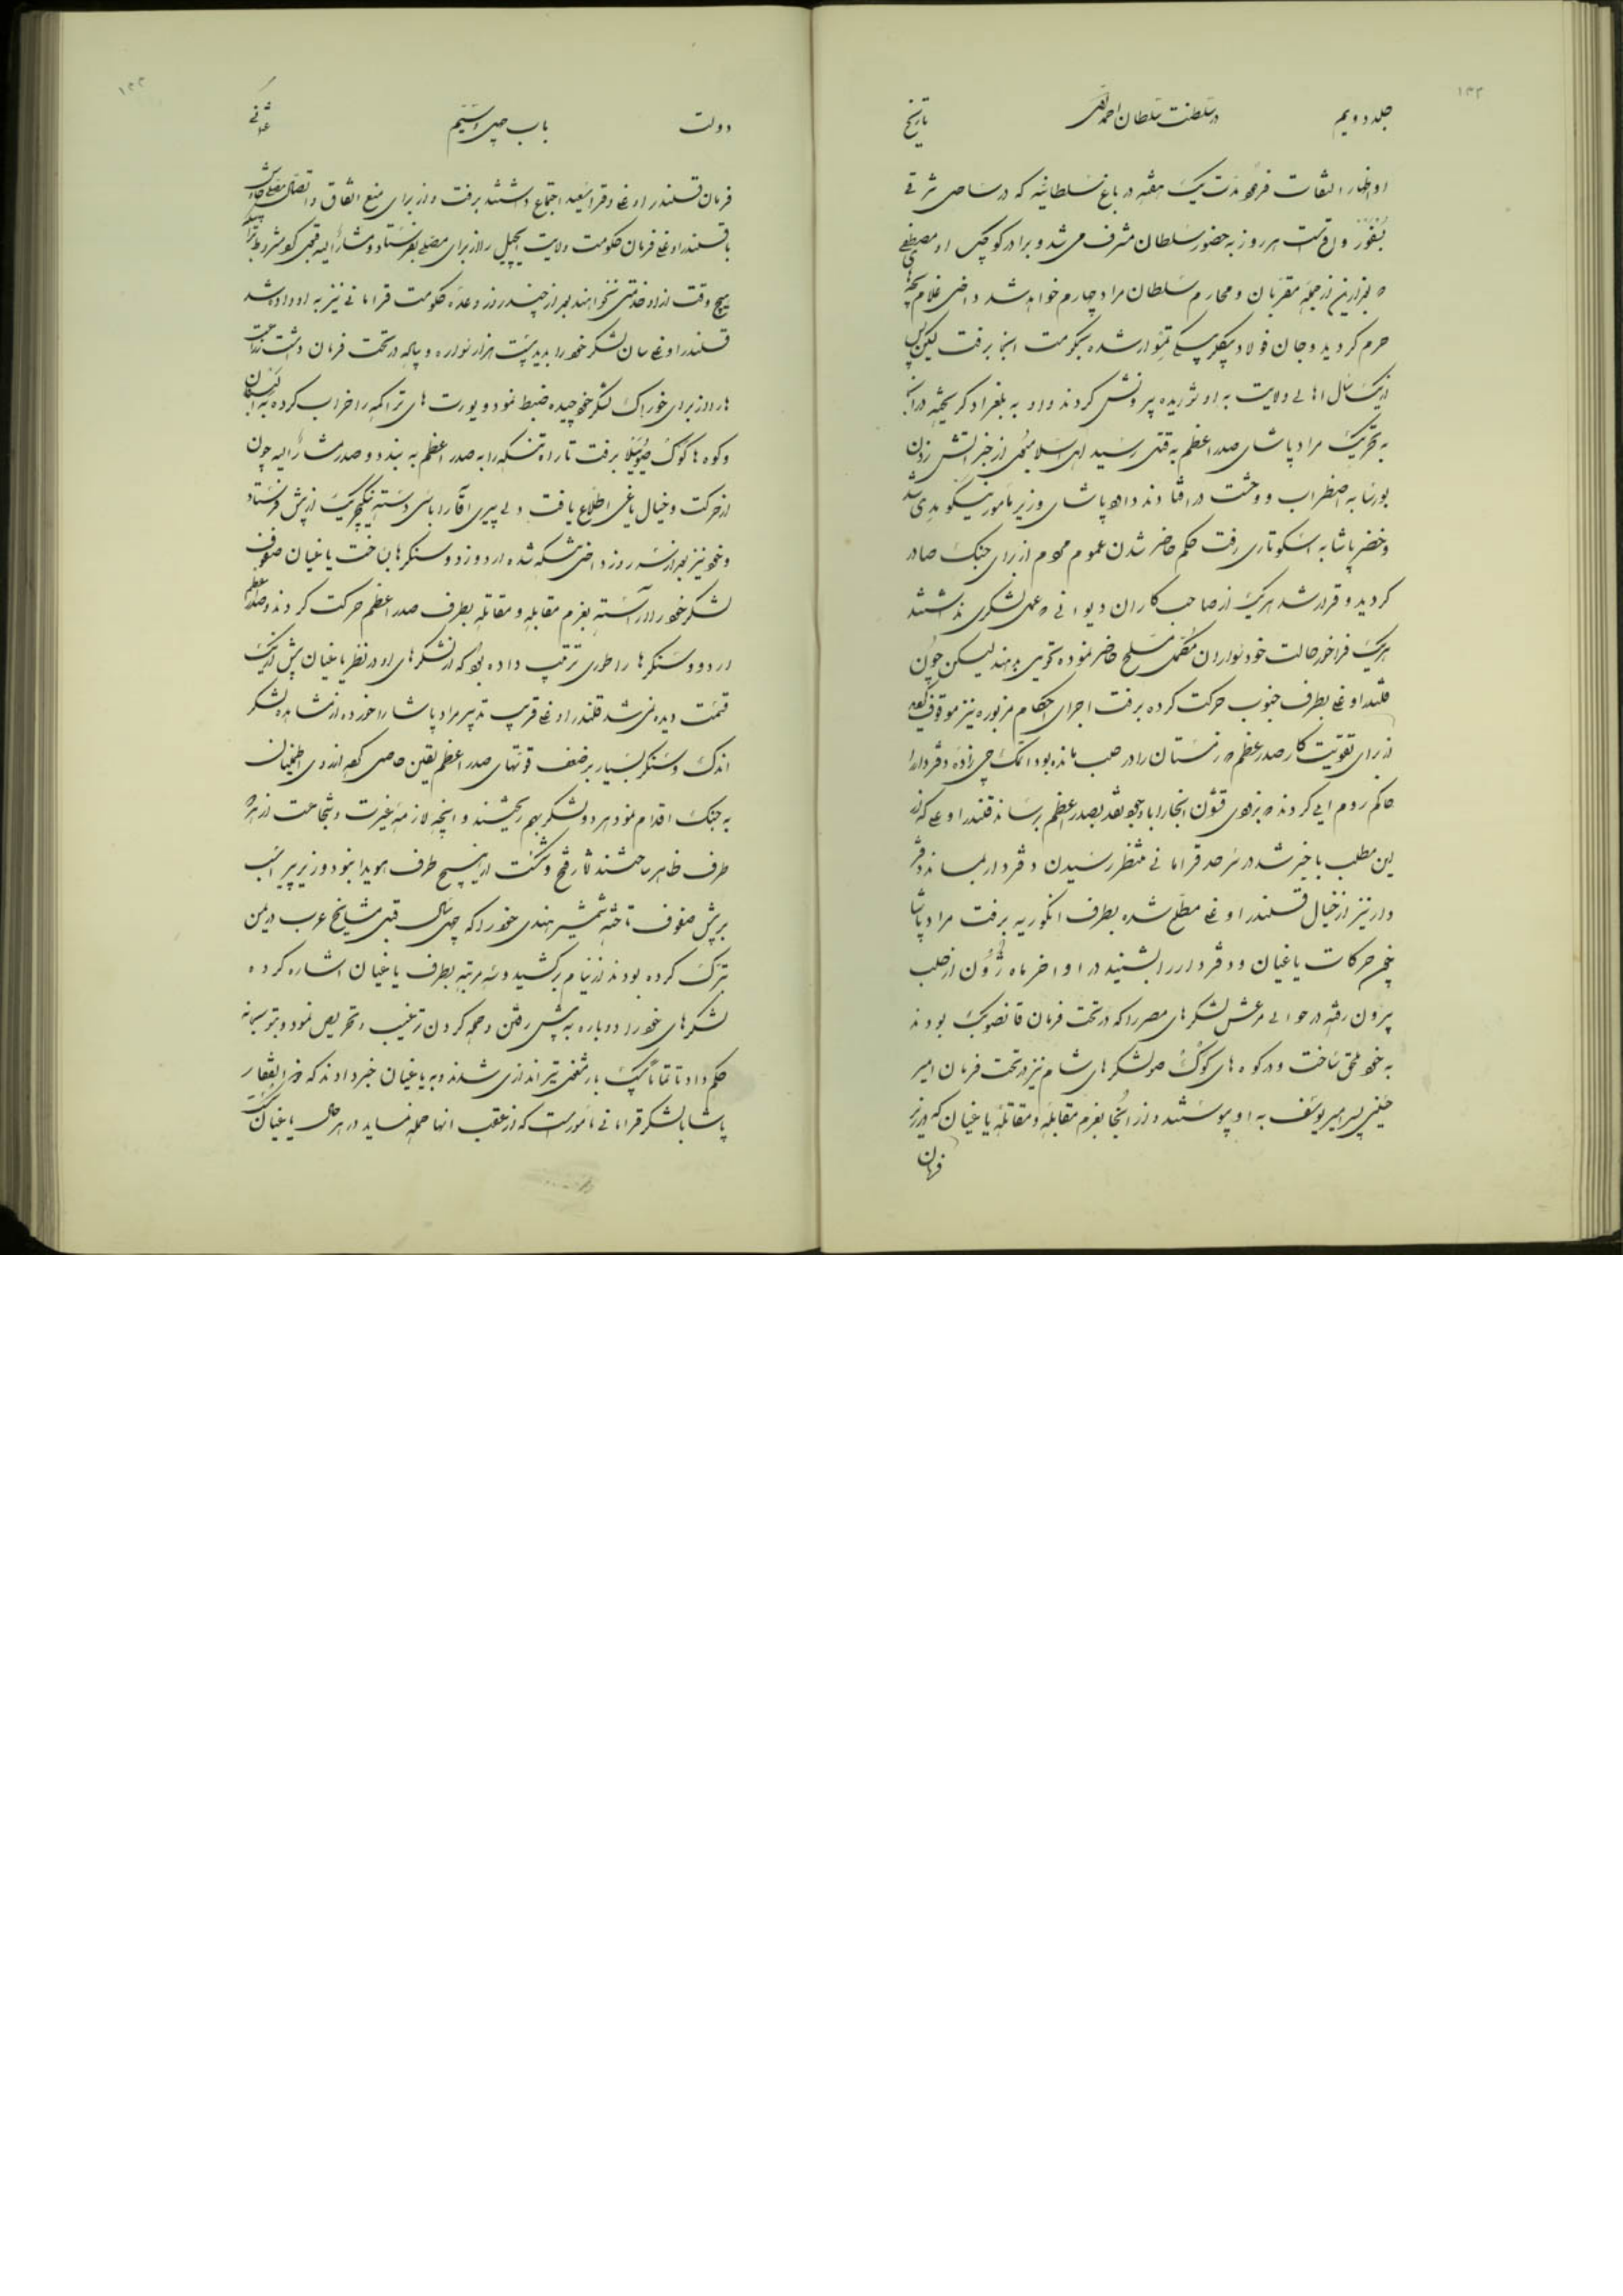 ۱۳۲
جلد دویم در سلطنت سلطان احمد تاریخ
او اظهار التفات فرموده مدت یک هفته در باغ سلطانیه که در ساحل شرقی
بسفور واقع است هر روز به حضور سلطان مشرف می شد و برادر کوچک او مصطفی
که بعد از این از جمله مقربان و محارم سلطان مراد چهارم خواهد شد داخل غلام بچه های
حرم کردید و جان فولاد بیکلربیکی تمثوار شده بحکومت انجا برفت لیکن پس
از یک سال اهالی ولایت به او شوریده بیرونش کردند و او به بلغراد کریخته در آنجا
به تحریک مراد پاشای صدر اعظم به قتل رسید اهل اسلامبول از خبر آتش زدن
بورسا به اضطراب و وحشت در افتادند داود پاشای وزیر مامور نیکومدی شد
و خضر پاشا به اسکوتاری رفت حکم حاضر شدن عموم مردم از برای جنک صادر
کردید و قرار شد هر یک از صاحب کاران دیوانی که عمل لشکری نداشتند
هر یک فراخور حالت خود سواران مکمل مسلح حاضر نموده تحویل بدهند لیکن چون
قلندر اوغلی بطرف جنوب حرکت کرده برفت اجرای احکام مزبوره نیز موقوف
از برای تقویت کار صدر اعظم که زمستان را در حلب مانده بود اتمک چی زاده دفتردار را
حاکم روم ایلی کردند که بزودی قشون انجا را با وجوه نقد بصدر اعظم برساند قلندر اوغلی که از
این مطلب با خبر شد در سرحد قرامانی منتظر رسیدن دفتردار بماند دفتر
دار نیز از خیال قلندر اوغلی مطلع شده بطرف انکوریه برفت مراد پاشا
حرکات یاغیان و دفتردار را بشنید در اواخر ماه ژون از حلب
بیرون رفته در حوالی مرعش لشکرهای مصر را که در تحت فرمان قانصو بیک بودند
به خود ملحق ساخت و در کوه های کوک صو لشکرهای شام نیز در تحت فرمان امیر
پسر امیر یوسف به او پیوستند و از انجا بعزم مقابله و مقاتله یاغیان که در زیر
فرمان
۱۳۳
دولت باب چهل و سیم عثمانی
فرمان قلندر اوغلی و قرا سعید اجتماع داشتند برفت و از برای منع اتفاق و اتصال مصلی چاوش
با قلندر اوغلی فرمان حکومت ولایت ایچیل را از برای مصلی بفرستاد و مشارالیه قبول کرد مشروط
هیچ وقت از او خدمتی نخواهند بعد از چند روز وعده حکومت قرامانی نیز به او داده شد
قلندر اوغلی سان لشکر خود را بدید بیست هزار سواره و پیاده در تحت فرمان داشت زراعت
ها را از برای خوراک لشکر خود چیده ضبط نمود و یورت های تراکمه را خراب کرده به
و کوه ها کوک صو برفت تا راه تنکه را به صدر اعظم به بندد و صدر مشارالیه چون
از حرکت و خیال یاغی اطلاع یافت دلی پیری آقا را با سی دسته ینکچریک از پیش فرستاد
و خود نیز بعد از سه روز داخل تنکه شده اردو زد و سنکرها بساخت یاغیان صفوف
لشکر خود را آراسته بعزم مقابله و مقاتله بطرف صدر اعظم حرکت کردند و صدر اعظم
اردو و سنکرها را طوری ترتیب داده بود که از لشکرهای او در نظر یاغیان بیش از یک
قسمت دیده نمی شد قلندر اوغلی فریب تدبیر مراد پاشا را خورده از مشاهده لشکر
اندک و سنکر بسیار بر ضعف قوتهای صدر اعظم یقین حاصل کرده از روی اطمینان
به جنک اقدام نمود هر دو لشکر بهم ریختند و انچه لازمه غیرت و شجاعت از هر دو
طرف ظاهر ساختند آثار فتح و شکست از هیچ طرف هویدا نبود وزیر پیر اسب
بر پیش صفوف تاخته شمشیر هندی خود را که چهل سال قبل مشایخ عرب در یمن
تبرک کرده بودند از نیام برکشید و سه مرتبه بطرف یاغیان اشاره کرده
لشکرهای خود را دوباره به پیش رفتن و حمله کردن ترغیب و تحریص نمود و بتوپخانه
حکم داد تا تماماً یک بار مشغول تیراندازی شدند و به یاغیان خبر دادند که ذوالفقار
پاشا با لشکر قرامانی مامور است که از عقب انها حمله نماید در هر حال یاغیان